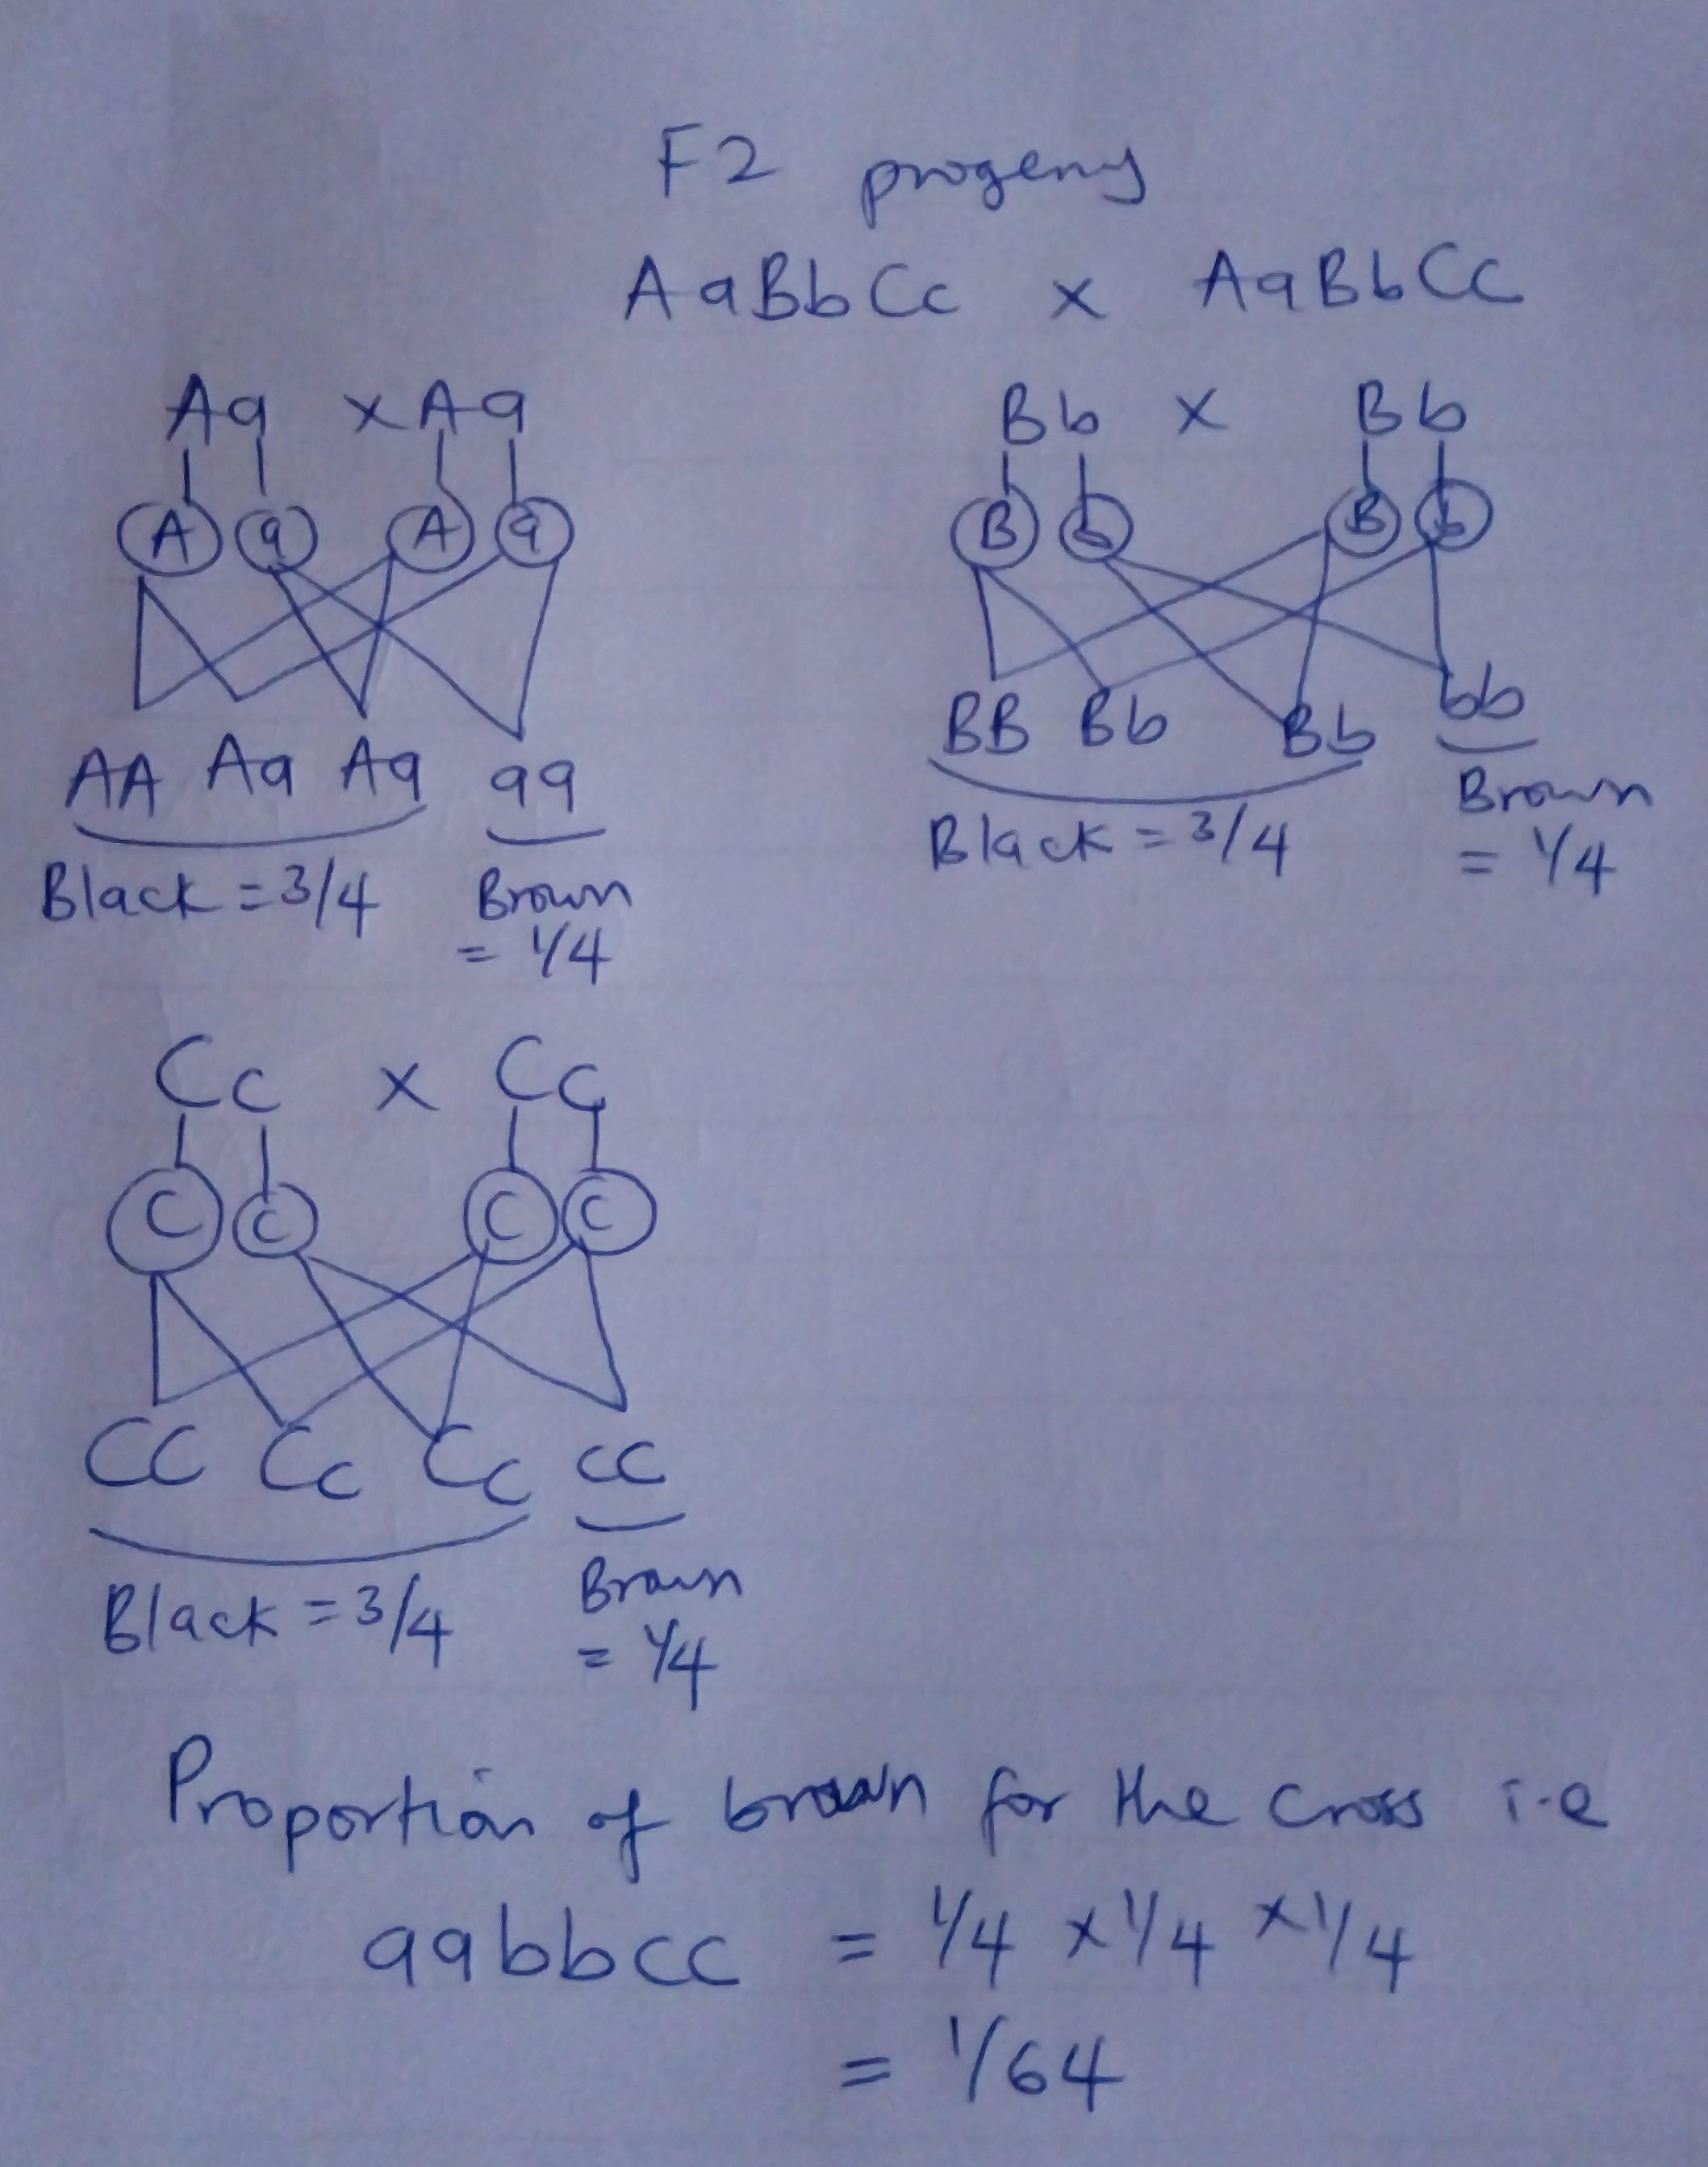 F2 progeny
AaBbCc x AaBbCc
Aa x Aa
A a A a
AA Aa Aa aa
Black = 3/4 Brown
= 1/4
Bb x Bb
B b B b
BB Bb Bb bb
Black = 3/4 Brown
= 1/4
Cc x Cc
C c C c
CC Cc Cc cc
Black = 3/4 Brown
= 1/4
Proportion of brown for the cross i.e
aabbcc = 1/4 x 1/4 x 1/4
= 1/64